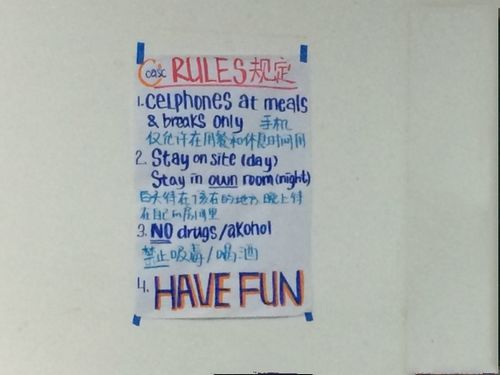 casc RULES 规定
1. CELPHONES at meals
& breaks only 手机
仅允许在用餐和休息时间用
2. Stay on site (day)
Stay in own room (night)
白天待在该在的地方,晚上待
在自己的房间里
3. NO drugs/alcohol
禁止吸毒/喝酒
4. HAVE FUN